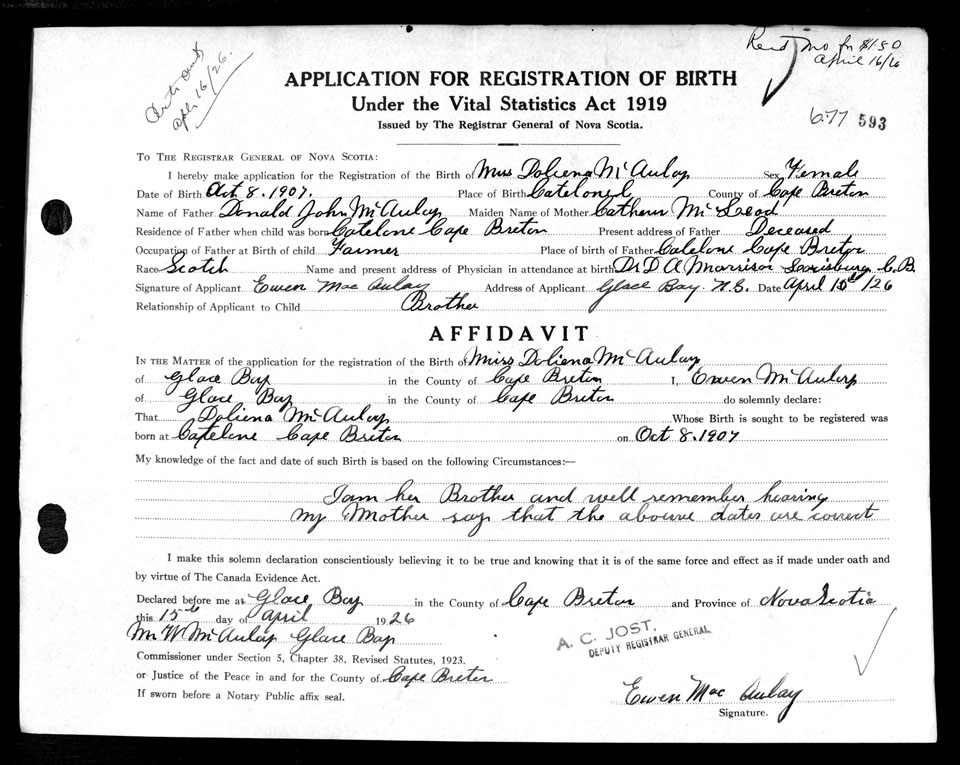 Rec'd Mo for $1.50
April 16/26
April 16/26.
APPLICATION FOR REGISTRATION OF BIRTH
Under the Vital Statistics Act 1919
Issued by The Registrar General of Nova Scotia.
677 593
TO THE REGISTRAR GENERAL OF NOVA SCOTIA:
I hereby make application for the Registration of the Birth of Miss Doliena McAulay Sex Female
Date of Birth Oct 8. 1907. Place of Birth Catelone County of Cape Breton
Name of Father Donald John McAulay Maiden Name of Mother Cathern McLeod
Residence of Father when child was born Catelone Cape Breton Present address of Father Deceased
Occupation of Father at Birth of child Farmer Place of birth of Father Catelone Cape Breton
Race Scotch Name and present address of Physician in attendance at birth Dr D A Morrison Louisburg C.B.
Signature of Applicant Ewen MacAulay Address of Applicant Glace Bay. N.S. Date April 15th /26
Relationship of Applicant to Child Brother
AFFIDAVIT
IN THE MATTER of the application for the registration of the Birth of Miss Doliena McAulay
of Glace Bay in the County of Cape Breton I, Ewen McAulay
of Glace Bay in the County of Cape Breton do solemnly declare:
That Doliena McAulay Whose Birth is sought to be registered was
born at Catelone Cape Breton on Oct 8. 1907
My knowledge of the fact and date of such Birth is based on the following Circumstances:—
I am her Brother and well remember hearing
my Mother say that the abouve dates are correct
I make this solemn declaration conscientiously believing it to be true and knowing that it is of the same force and effect as if made under oath and
by virtue of The Canada Evidence Act.
Declared before me at Glace Bay in the County of Cape Breton and Province of Nova Scotia
this 15th day of April 1926
Mr W McAulay Glace Bay
A. C. JOST,
DEPUTY REGISTRAR GENERAL
Commissioner under Section 5, Chapter 38, Revised Statutes, 1923.
or Justice of the Peace in and for the County of Cape Breton
If sworn before a Notary Public affix seal.
Ewen MacAulay
Signature.